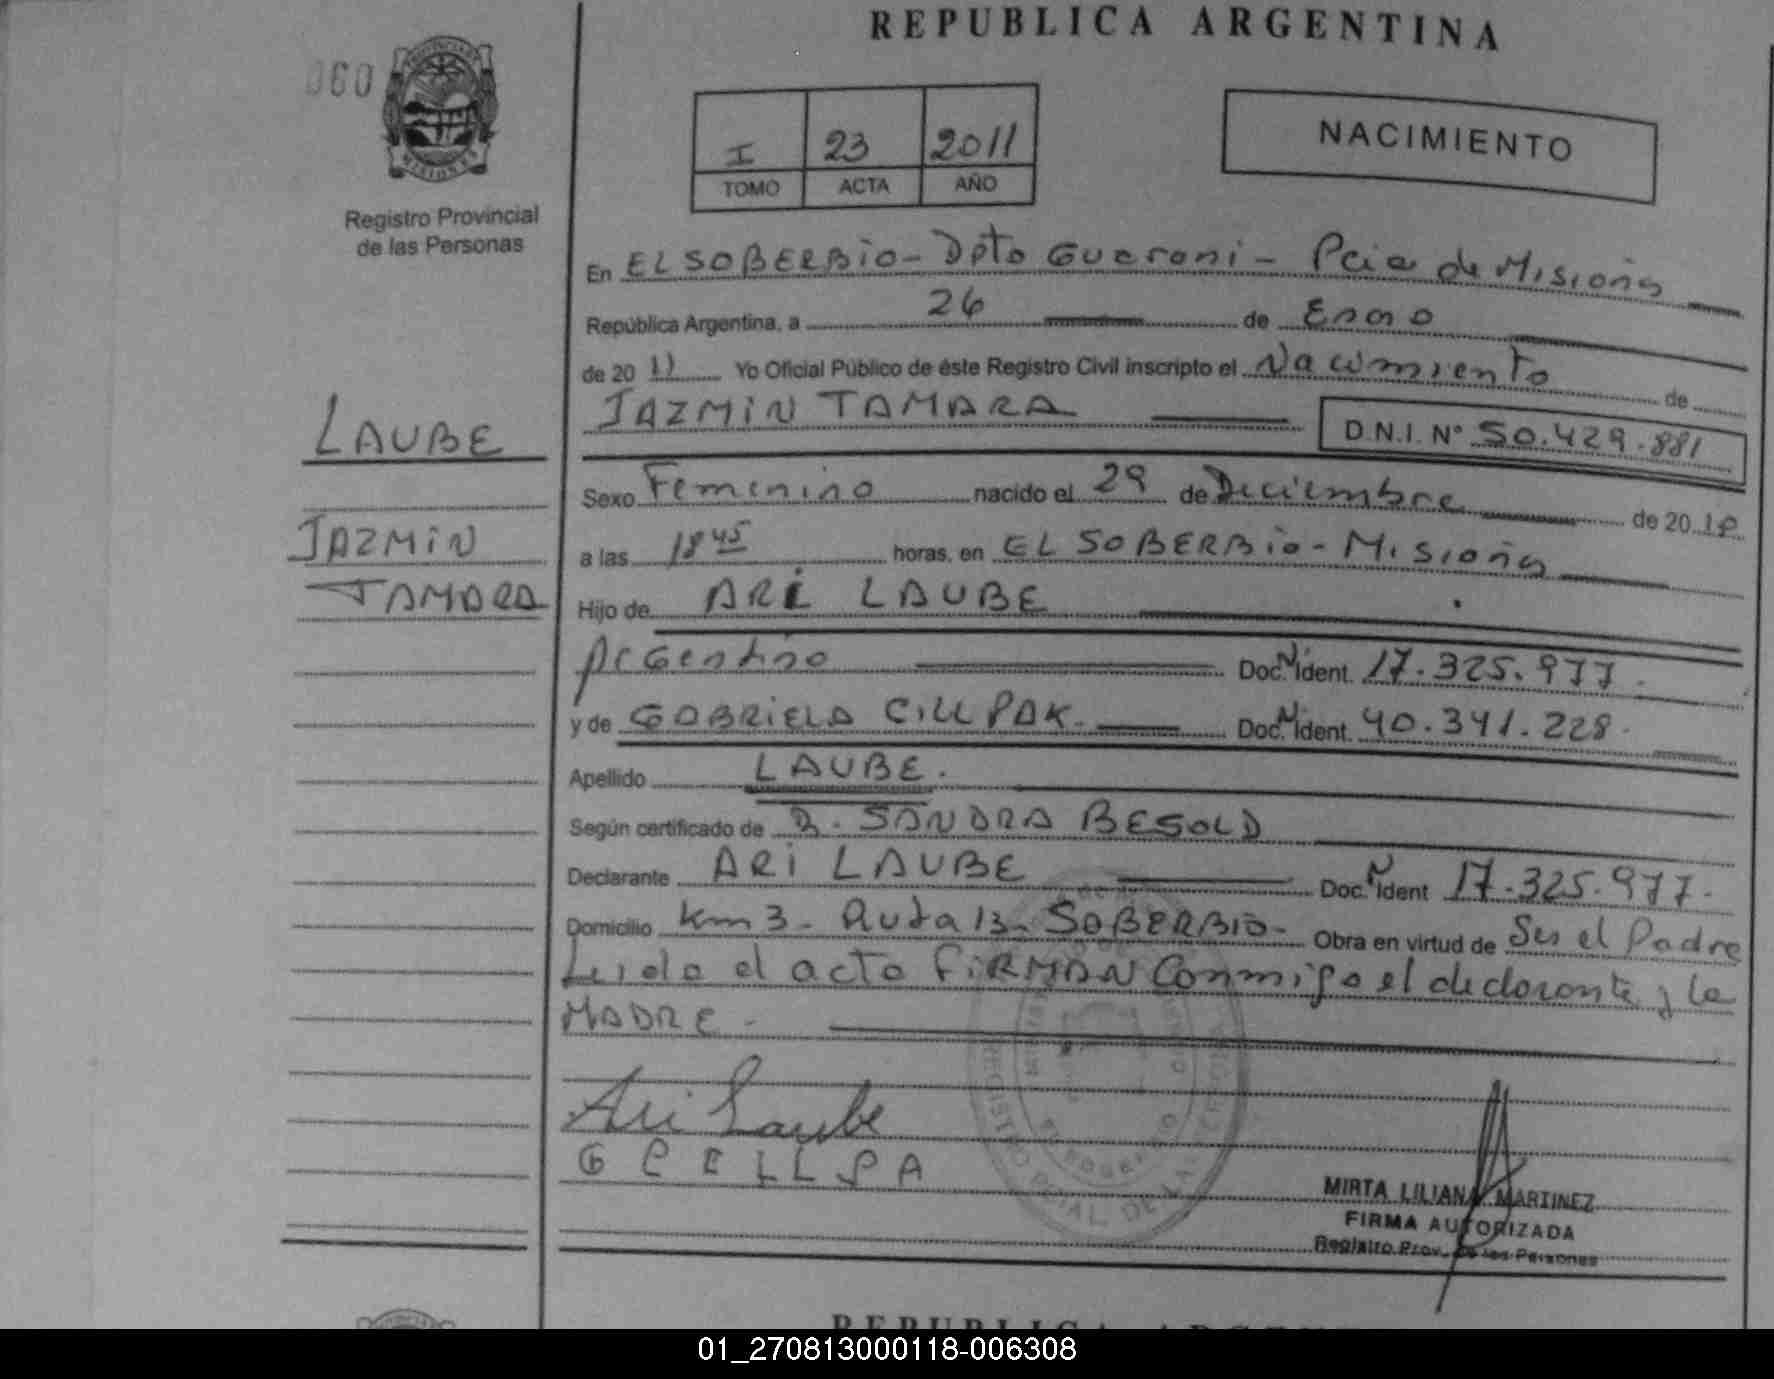 REPUBLICA ARGENTINA
060
PROVINCIA DE
MISIONES
Registro Provincial
de las Personas
I 23 2011
TOMO ACTA AÑO
NACIMIENTO
En EL SOBERBIO - Dpto Guarani - Pcia de Misiones
República Argentina, a 26 de Enero
de 2011 Yo Oficial Público de éste Registro Civil inscripto el Nacimiento de
JAZMIN TAMARA
D.N.I. Nº 50.429.881
LAUBE
JAZMIN
TAMARA
Sexo Femenino nacido el 29 de Diciembre de 2010
a las 18 45 horas, en EL SOBERBIO - Misiones
Hijo de ARI LAUBE
Argentino Doc. N Ident. 17.325.977.
y de GABRIELA CILLPAK. Doc. N Ident. 40.341.228.
Apellido LAUBE.
Según certificado de SANDRA BESOLD
Declarante ARI LAUBE Doc. N Ident 17.325.977.
Domicilio Km 3 - Ruta 13 - SOBERBIO - Obra en virtud de Ser el Padre
Leida el acta FIRMAN Conmigo el declarante y la
MADRE -
Ari Laube
MIRTA LILIANA MARTINEZ
FIRMA AUTORIZADA
Registro Prov. de las Personas
REPUBLICA ARGENTINA
01_270813000118-006308